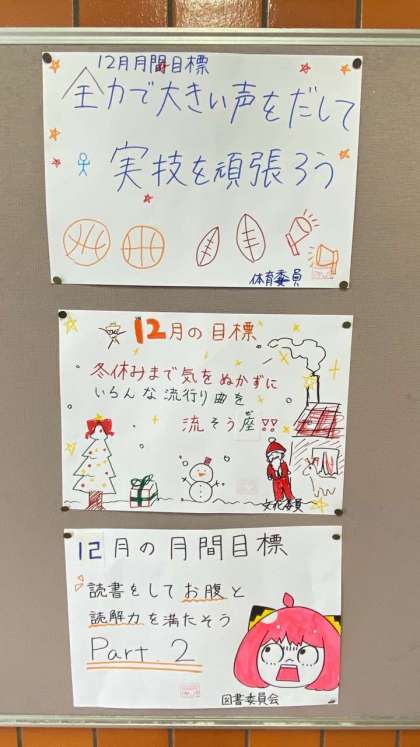 12月月間目標
全力で大きい声をだして
実技を頑張ろう
体育委員
12月の目標
冬休みまで気をぬかずに
いろんな流行り曲を
流そう座!!
文化委員
12月の月間目標
読書をしてお腹と
読解力を満たそう
Part.2
図書委員会